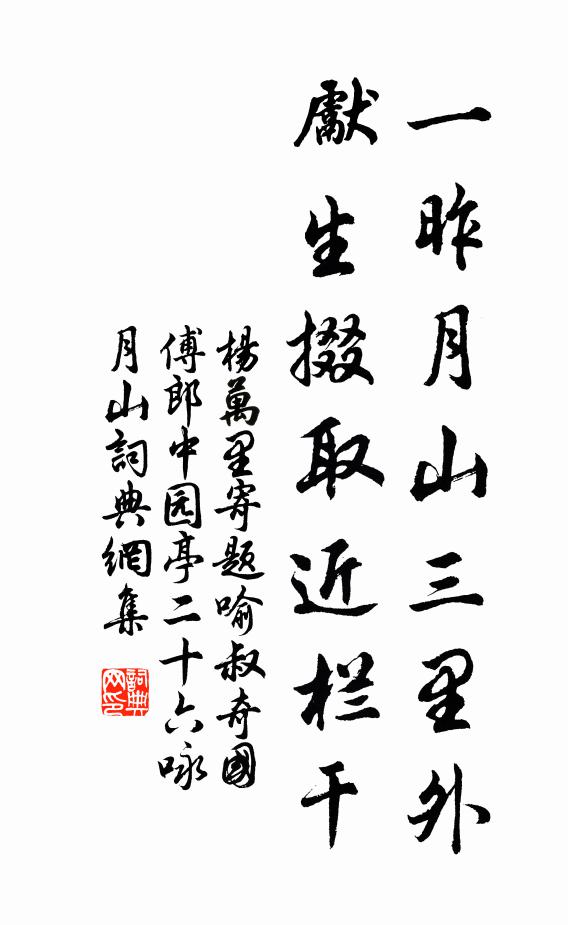 一昨月山三里外
獻生掇取近栏干
楊萬里寄題喻叔奇國
傅郎中园亭二十六咏
月山詞典網集
詞典网印